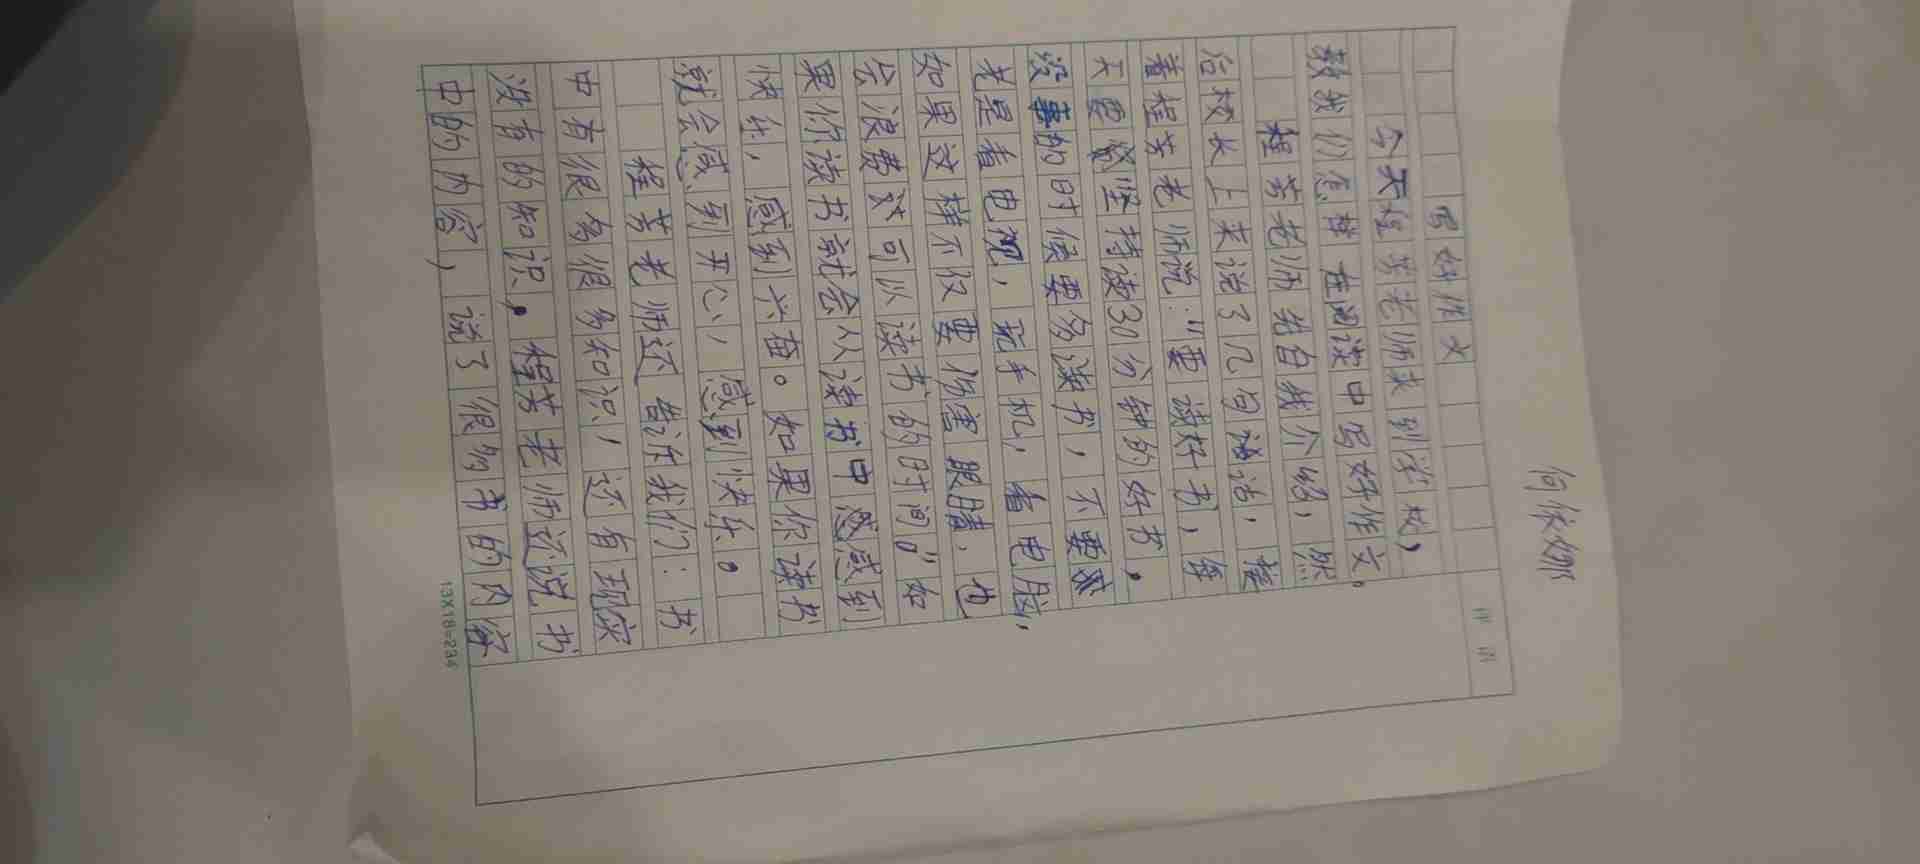 写好作文
今天程芳老师来到学校，
教我们怎样在阅读中写好作文。
程芳老师先自我介绍，然
后校长上来说了几句话，接
着程芳老师说：“要读好书，每
天要坚持读30分钟的好书。
没事的时候要多读书，不要
老是看电视，玩手机，看电脑，
如果这样不仅要伤害眼睛，也
会浪费可以读书的时间。”如
果你读书就会从读书中感到
快乐，感到兴奋。如果你读书
就会感到开心，感到快乐。
程芳老师还告许我们：书
中有很多很多知识，还有现实
没有的知识。程芳老师还说书
中的内容，说了很多书的内容
13X18=234